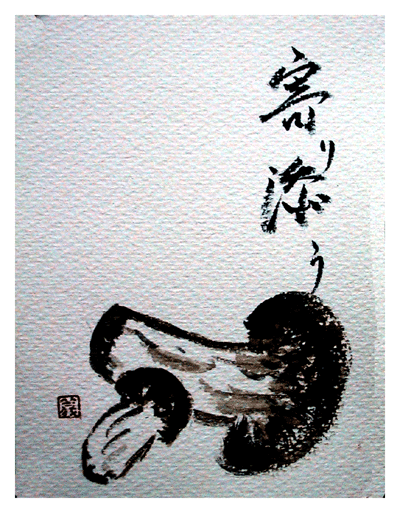 寄り添う